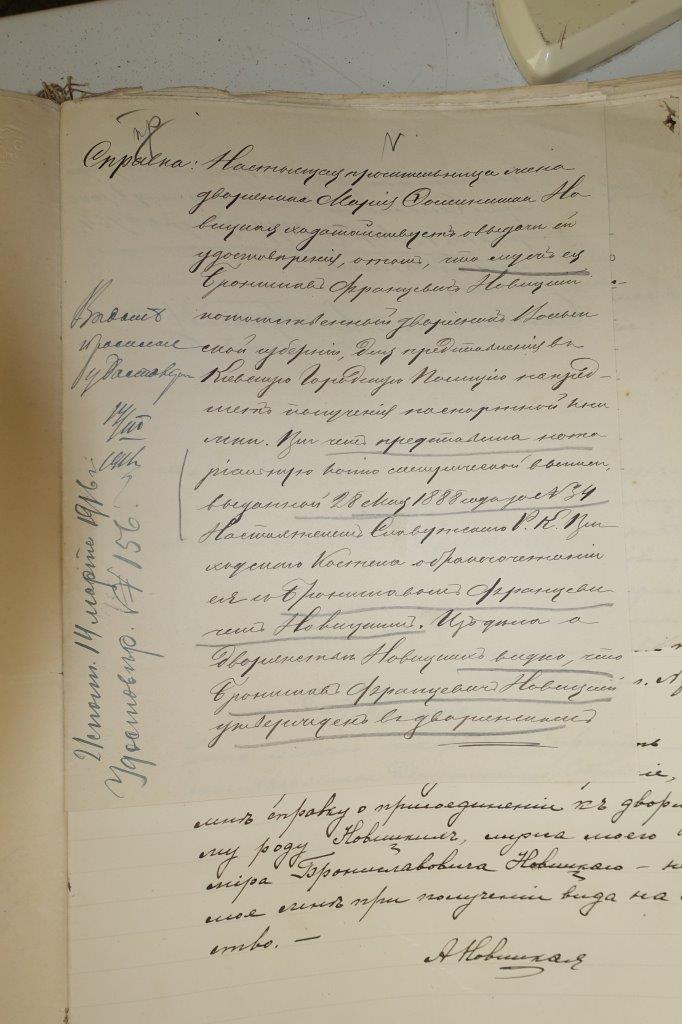 Справка: Настоящая просительница жена
дворянина Марія Доминикова Но
вицкая ходатайствуетъ о выдачи ей
удостоверенія, о томъ, что мужъ ея
Брониславъ Францевичъ Новицкій
потомственный дворянинъ Волын
ской губерніи, для представленія въ
Кіевскую Городскую Полицію на пред-
метъ полученія паспортной кни
жки. При чемъ представила нота
ріальную копію метрической выписи,
выданной 28 Мая 1888 года за № 34
Настоятелемъ Славутскаго Р. К. При
ходскаго Костела о бракосочетаніи
ея съ Брониславомъ Францеви
чемъ Новицкимъ. Изъ дѣла о
дворянствѣ Новицкихъ видно, что
Брониславъ Францевичъ Новицкій
утвержденъ въ дворянствѣ
Выдать
просимое
удостовѣр
14/III
1916
Исполн. 14 марта 1916 г.
Удостовѣр. № 156.
мнѣ справку о присоединеніи къ дворян
му роду Новицкихъ, мужа моего
міра Брониславовича Новицкаго –
мое мнѣ при полученіи вида на
ство. –
А Новицкая